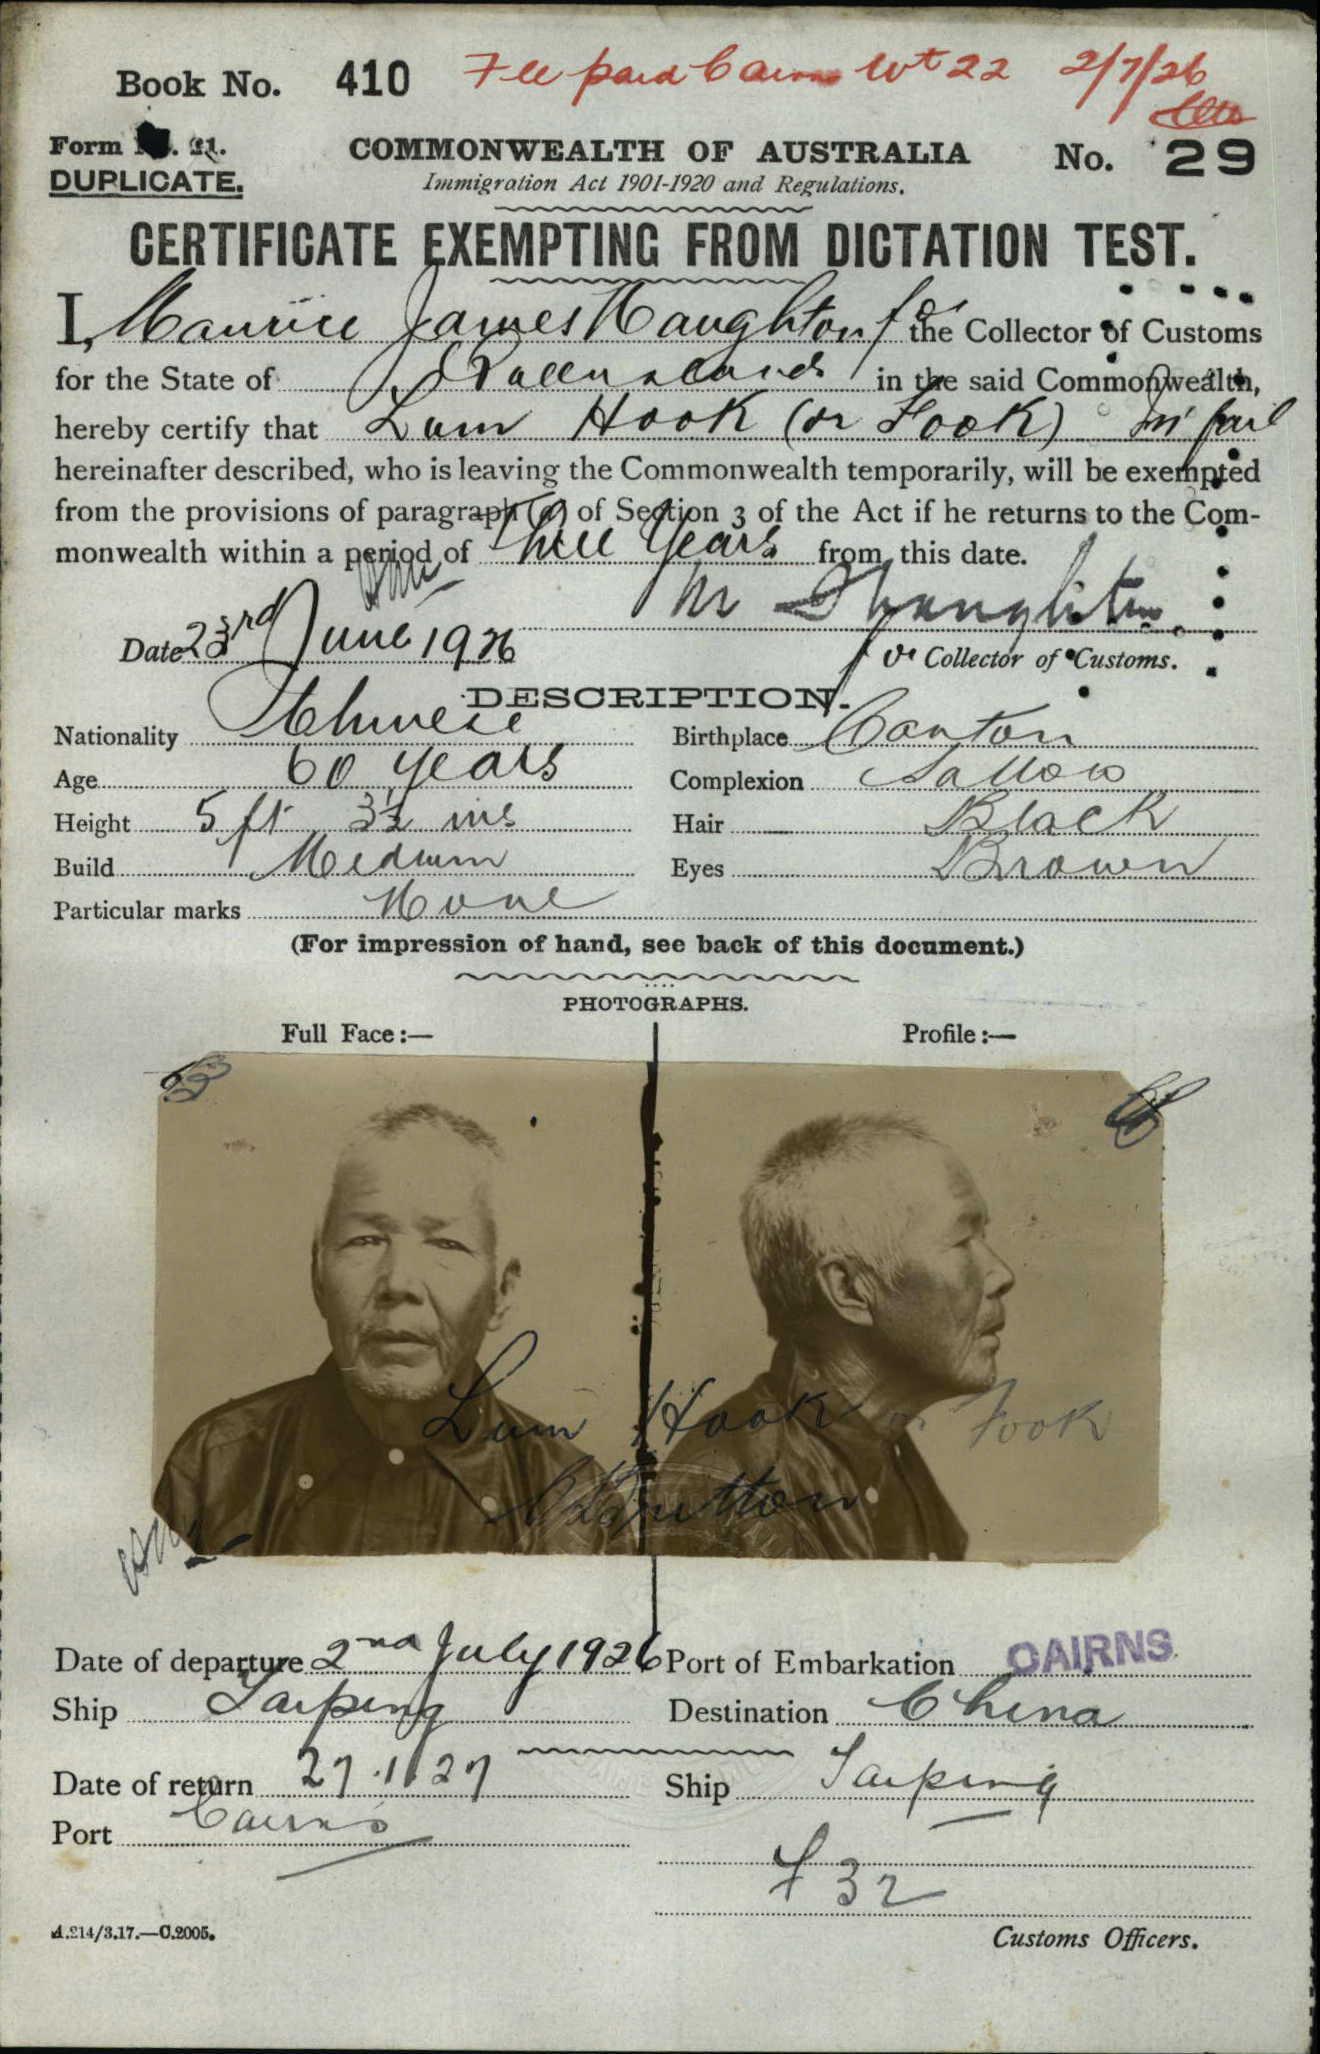 Book No. 410 Fee paid Cairns 22 2/7/26
Form 21.
DUPLICATE.
COMMONWEALTH OF AUSTRALIA No. 29
Immigration Act 1901-1920 and Regulations.
CERTIFICATE EXEMPTING FROM DICTATION TEST.
I, Maurice James Naughton for the Collector of Customs
for the State of Queensland in the said Commonwealth,
hereby certify that Lum Hook (or Fook)
hereinafter described, who is leaving the Commonwealth temporarily, will be exempted
from the provisions of paragraph (a) of Section 3 of the Act if he returns to the Com-
monwealth within a period of three years from this date.
Date 23rd June 1926
for Collector of Customs.
DESCRIPTION.
Nationality Chinese Birthplace Canton
Age 60 years Complexion Sallow
Height 5 ft 3½ ins Hair Black
Build Medium Eyes Brown
Particular marks None
(For impression of hand, see back of this document.)
PHOTOGRAPHS.
Full Face:— Profile:—
Lum Hook or Fook
Date of departure 2nd July 1926 Port of Embarkation CAIRNS
Ship Taiping Destination China
Date of return 27.1.27 Ship Taiping
Port Cairns
F 32
A.214/3.17.—C.2005. Customs Officers.